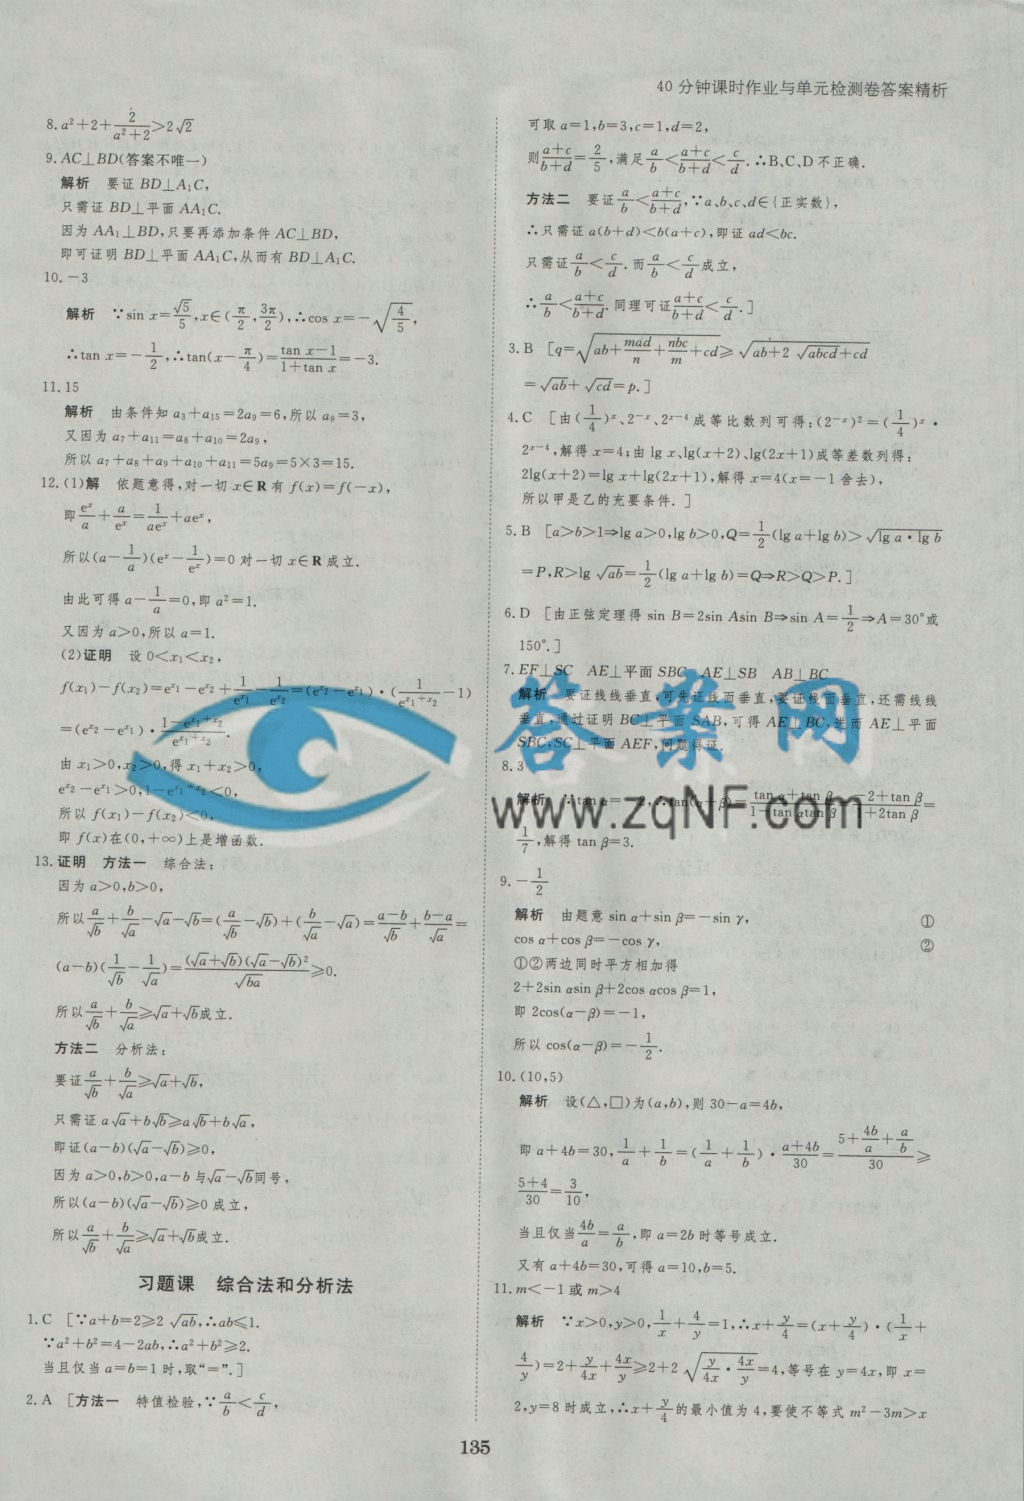 40分钟课时作业与单元检测卷答案精析
8. a²+2+2/(a²+2)>2√2
9. AC⊥BD(答案不唯一)
解析 要证 BD⊥A₁C,
只需证 BD⊥平面 AA₁C.
因为 AA₁⊥BD,只要再添加条件 AC⊥BD,
即可证明 BD⊥平面 AA₁C,从而有 BD⊥A₁C.
10. -3
解析 ∵sin x=√5/5,x∈(π/2,3π/2),∴cos x=-√(4/5),
∴tan x=-1/2,∴tan(x-π/4)=(tan x-1)/(1+tan x)=-3.
11. 15
解析 由条件知 a₃+a₁₅=2a₉=6,所以 a₉=3,
又因为 a₇+a₁₁=a₈+a₁₀=2a₉,
所以 a₇+a₈+a₉+a₁₀+a₁₁=5a₉=5×3=15.
12. (1)解 依题意得,对一切 x∈R 有 f(x)=f(-x),
即 eˣ/a+a/eˣ=1/(aeˣ)+aeˣ,
所以(a-1/a)(eˣ-1/eˣ)=0 对一切 x∈R 成立.
由此可得 a-1/a=0,即 a²=1.
又因为 a>0,所以 a=1.
(2)证明 设 0<x₁<x₂,
f(x₁)-f(x₂)=e^x₁-e^x₂+1/e^x₁-1/e^x₂=(e^x₂-e^x₁)·(1/e^(x₁+x₂)-1)
=(e^x₂-e^x₁)·(1-e^(x₁+x₂))/e^(x₁+x₂).
由 x₁>0,x₂>0,得 x₁+x₂>0,
e^x₂-e^x₁>0,1-e^(x₁+x₂)<0,
所以 f(x₁)-f(x₂)<0,
即 f(x)在(0,+∞)上是增函数.
13. 证明 方法一 综合法:
因为 a>0,b>0,
所以 a/√b+b/√a-√a-√b=(a/√b-√b)+(b/√a-√a)=(a-b)/√b+(b-a)/√a=
(a-b)(1/√b-1/√a)=(√a+√b)(√a-√b)²/√ba≥0.
所以 a/√b+b/√a≥√a+√b成立.
方法二 分析法:
要证 a/√b+b/√a≥√a+√b,
只需证 a√a+b√b≥a√b+b√a,
即证(a-b)(√a-√b)≥0,
因为 a>0,b>0,a-b 与√a-√b同号,
所以(a-b)(√a-√b)≥0 成立,
所以 a/√b+b/√a≥√a+√b成立.
习题课 综合法和分析法
1. C [∵a+b=2≥2√ab,∴ab≤1.
∵a²+b²=4-2ab,∴a²+b²≥2.
当且仅当 a=b=1 时,取“=”.]
2. A [方法一 特值检验,∵a/b<c/d,
可取 a=1,b=3,c=1,d=2,
则(a+c)/(b+d)=2/5,满足 a/b<(a+c)/(b+d)<c/d.∴B、C、D 不正确.
方法二 要证 a/b<(a+c)/(b+d),∵a、b、c、d∈{正实数},
∴只需证 a(b+d)<b(a+c),即证 ad<bc.
只需证 a/b<c/d.而 a/b<c/d成立,
∴a/b<(a+c)/(b+d).同理可证(a+c)/(b+d)<c/d.]
3. B [q=√(ab+mad/n+nbc/m+cd)≥√(ab+2√abcd+cd)
=√ab+√cd=p.]
4. C [由(1/4)ˣ、2⁻ˣ、2ˣ⁻⁴成等比数列可得:(2⁻ˣ)²=(1/4)ˣ·
2ˣ⁻⁴,解得 x=4;由 lg x、lg(x+2)、lg(2x+1)成等差数列得:
2lg(x+2)=lg x+lg(2x+1),解得 x=4(x=-1 舍去),
所以甲是乙的充要条件.]
5. B [a>b>1⇒lg a>0,lg b>0,Q=1/2(lg a+lg b)>√(lg a·lg b)
=P,R>lg √ab=1/2(lg a+lg b)=Q⇒R>Q>P.]
6. D [由正弦定理得 sin B=2sin Asin B⇒sin A=1/2⇒A=30°或
150°.]
7. EF⊥SC AE⊥平面 SBC AE⊥SB AB⊥BC
解析 要证线线垂直,可先证线面垂直,要证线面垂直,还需线线
垂直,通过证明 BC⊥平面 SAB,可得 AE⊥BC,进而 AE⊥平面
SBC,SC⊥平面 AEF,问题得证.
8. 3
解析 ∵tan α=-2,∴tan(α+β)=(tan α+tan β)/(1-tan αtan β)=(-2+tan β)/(1+2tan β)=
1/7,解得 tan β=3.
9. -1/2
解析 由题意 sin α+sin β=-sin γ, ①
cos α+cos β=-cos γ, ②
①②两边同时平方相加得
2+2sin αsin β+2cos αcos β=1,
即 2cos(α-β)=-1,
所以 cos(α-β)=-1/2.
10. (10,5)
解析 设(△,□)为(a,b),则 30-a=4b,
即 a+4b=30,1/a+1/b=(1/a+1/b)·(a+4b)/30=(5+4b/a+a/b)/30≥
(5+4)/30=3/10,
当且仅当4b/a=a/b,即 a=2b 时等号成立.
又有 a+4b=30,可得 a=10,b=5.
11. m<-1 或 m>4
解析 ∵x>0,y>0,1/x+4/y=1,∴x+y/4=(x+y/4)·(1/x+
4/y)=2+y/4x+4x/y≥2+2√(y/4x·4x/y)=4,等号在 y=4x,即 x=
2,y=8 时成立,∴x+y/4的最小值为 4,要使不等式 m²-3m>x
答案网
www.zqNF.com
135